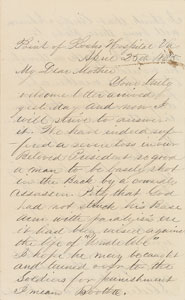 Point of Rocks Hospital Va
April 23rd 1865
My Dear Mother
Your kind
welcome I received
yesterday and now I
will strive to answer
it. We have indeed suf-
fered a severe loss in our
beloved President so good
a man to be basely shot
in the back by a cowardly
assassin Pity that God
had not struck his base
arm with paralysis ere
it had been raised against
the life of "Uncle Abe"
I hope he may be caught
and turned over to the
Soldiers for punishment
I mean Booth.